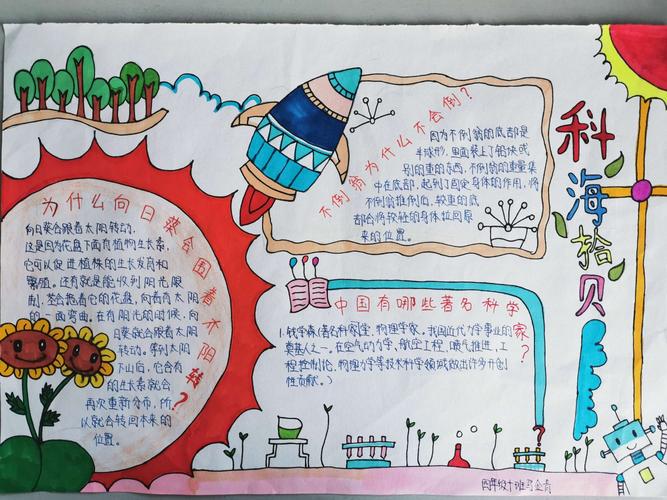 科海拾贝
为什么向日葵会围着太阳转?
向日葵会跟着太阳转动,
这是因为花盘下面有植物生长素,
它可以促进植株的生长发育和
繁殖。还有就是能收到阳光限
制,茎会抱着它的花盘,向着有太阳
的一面弯曲。在有阳光的时候,向
日葵就会跟着太阳
转动。等到太阳
下山后,它含有
的生长素就会
再次重新分布,所
以就会转回本来的
位置。
不倒翁为什么不会倒?
因为不倒翁的底部是
半球形,里面装上了铅块或
别的重的东西,不倒翁的重量集
中在底部,起到了固定身体的作用,将
不倒翁推倒后,较重的底
部会将较轻的身体拉回原
来的位置。
中国有哪些著名科学家?
1.钱学森(著名科家学,物理学家,我国近代力学事业的
奠基人之一。在空气动力学、航空工程、喷气推进、工
程控制论、物理力学等技术科学领域做出许多开创
性贡献。)
?
四年级十班马金青